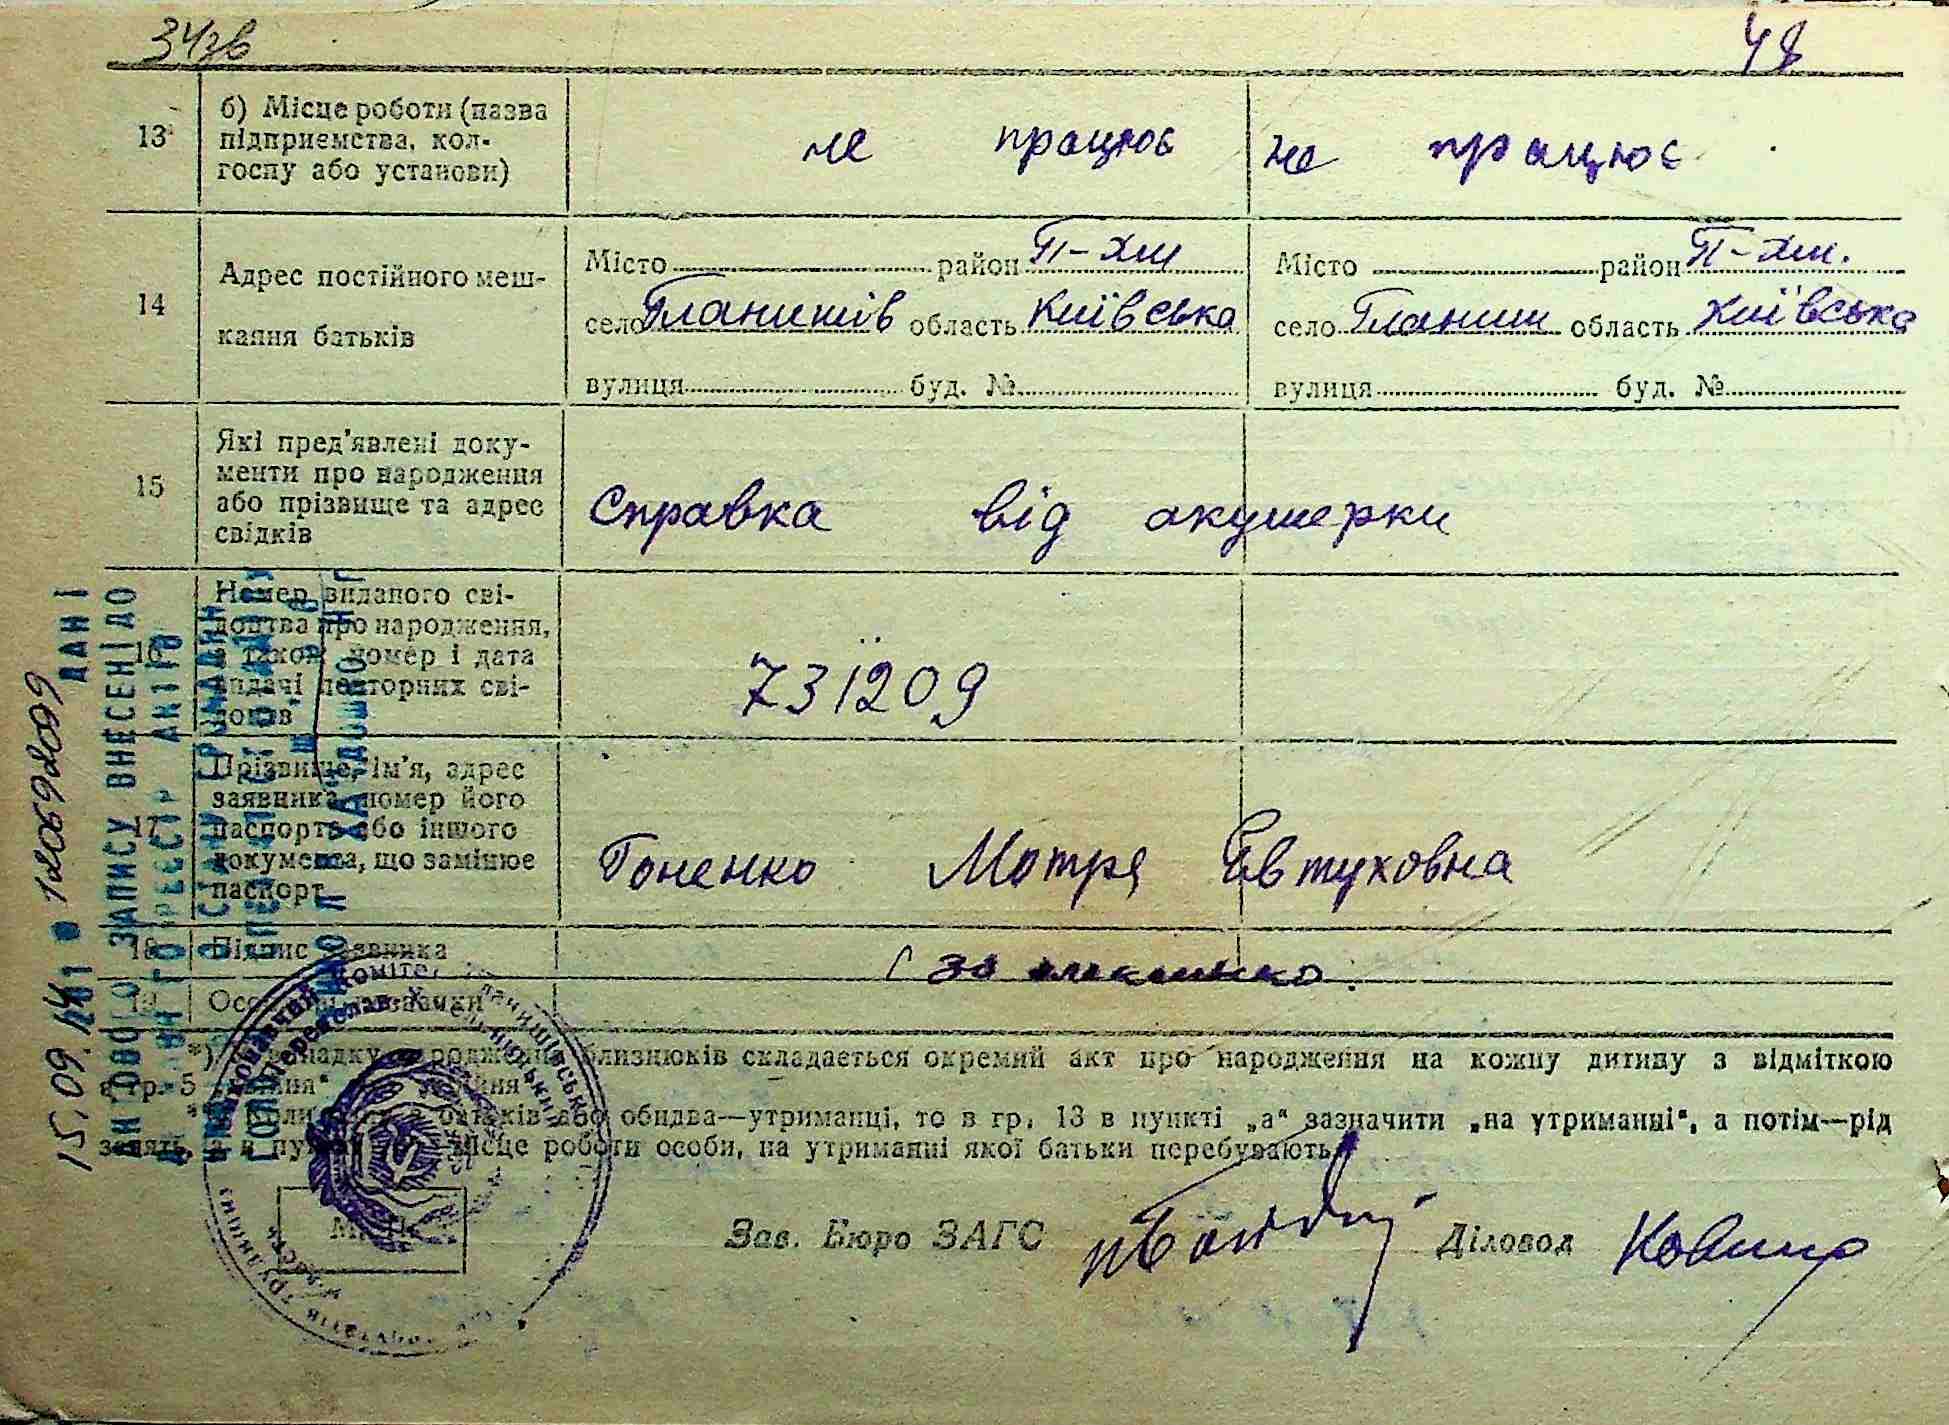 34зв
48
13
б) Місце роботи (назва
підприємства, кол-
госпу або установи)
не працює
не працює
14
Адрес постійного меш-
кання батьків
Місто район П-Хм
село Гланишів область Київська
вулиця буд. №
Місто район П-Хм.
село Гланиш область Київська
вулиця буд. №
15
Які пред'явлені доку-
менти про народження
або прізвище та адрес
свідків
Справка від акушерки
16
Номер виданого сві-
доцтва про народження,
а також номер і дата
видачі повторних сві-
доцтв
731209
17
Прізвище, ім'я, адрес
заявника, номер його
паспорта або іншого
документа, що замінює
паспорт
Гоненко Мотря Євтуховна
18
Підпис заявника
за
19
*) В випадку народження близнюків складається окремий акт про народження на кожну дитину з відміткою
в гр. 5
батьків або обидва—утриманці, то в гр. 13 в пункті „а“ зазначити „на утриманні“, а потім—рід
занять, а в місце роботи особи, на утриманні якої батьки перебувають.
Зав. Бюро ЗАГС
Діловод
ДАНІ
ЗАПИСУ ВНЕСЕНІ ДО
15.09.